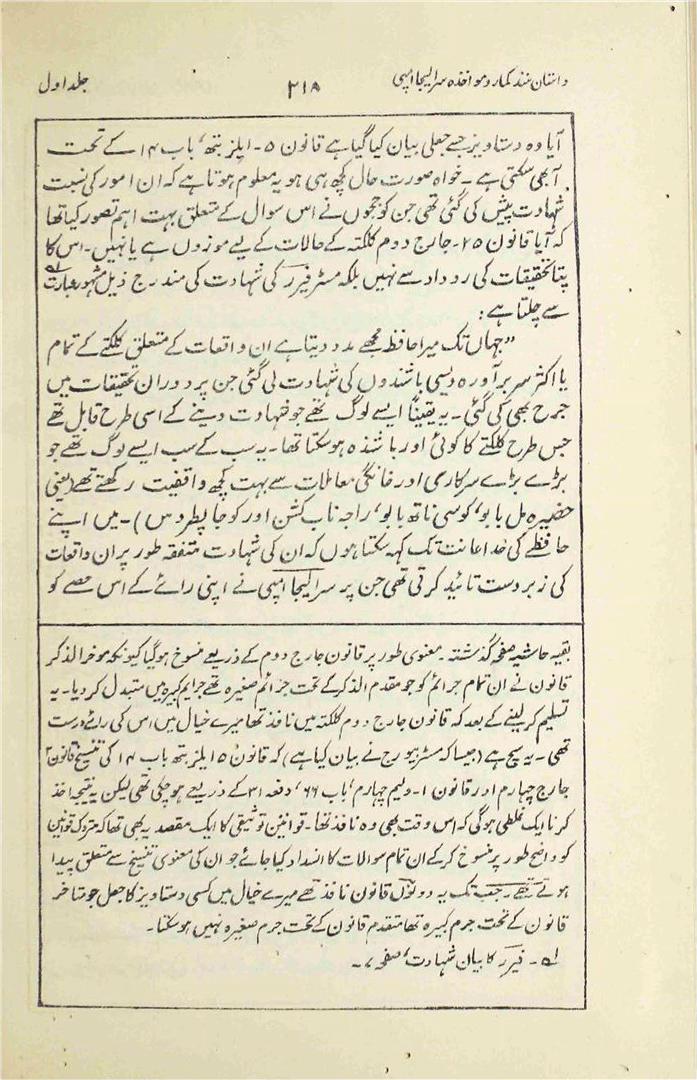 داستان نند کمار و مواخذہ سرالیجا امپی
۲۱۵
جلد اول
آیا وہ دستاویز جسے جعلی بیان کیا گیا ہے قانون ۵۔ ایلزبتھ، باب ۱۴ کے تحت
آبھی سکتی ہے۔ خواہ صورت حال کچھ ہی ہو یہ معلوم ہوتا ہے کہ ان امور کی نسبت
شہادت پیش کی گئی تھی جن کو ججوں نے اس سوال کے متعلق بہت اہم تصور کیا تھا
کہ آیا قانون ۲۵۔ جارج دوم کلکتہ کے حالات کے لیے موزوں ہے یا نہیں۔ اس کا
پتا تحقیقات کی روداد سے نہیں بلکہ مسٹر فیرر کی شہادت کی مندرج ذیل مشہور عبارت لہ
سے چلتا ہے:
”جہاں تک میرا حافظہ مجھے مدد دیتا ہے ان واقعات کے متعلق کلکتے کے تمام
یا اکثر سر برآوردہ دیسی باشندوں کی شہادت لی گئی جن پر دوران تحقیقات میں
جرح بھی کی گئی۔ یہ یقیناً ایسے لوگ تھے جو شہادت دینے کے اسی طرح قابل تھے
جس طرح کلکتے کا کوئی اور باشندہ ہوسکتا تھا۔ یہ سب کے سب ایسے لوگ تھے جو
بڑے بڑے سرکاری اور خانگی معاملات سے بہت کچھ واقفیت رکھتے تھے (یعنی
ہزیرہ مل بابو، کوسی ناتھ بابو، راجہ ناب کشن اور کوجا پطردس)۔ میں اپنے
حافظے کی خداعانت تک کہہ سکتا ہوں کہ ان کی شہادت متفقہ طور پر ان واقعات
کی زبردست تائید کرتی تھی جن پر سرالیجا امپی نے اپنی رائے کے اس حصے کو
بقیہ حاشیہ صفحہ گذشتہ۔ معنوی طور پر قانون جارج دوم کے ذریعے منسوخ ہوگیا کیونکہ موخر الذکر
قانون نے ان تمام جرائم کو جو مقدم الذکر کے تحت جرائم صغیرہ تھے جرایم کبیرہ میں متبدل کردیا۔ یہ
تسلیم کرلینے کے بعد کہ قانون جارج دوم کلکتہ میں نافذ تھا میرے خیال میں اس کی رائے درست
تھی۔ یہ سچ ہے (جیسا کہ مسٹر بیورج نے بیان کیا ہے) کہ قانون ۵ ایلزبتھ باب ۱۴ کی تنسیخ قانون ۲
جارج چہارم اور قانون ۱۔ ولیم چہارم، باب ۶۶، دفعہ ۳۱ کے ذریعے ہوچکی تھی لیکن یہ نتیجہ اخذ
کرنا ایک غلطی ہوگی کہ اس وقت بھی وہ نافذ تھا۔ قوانین توثیقی کا ایک مقصد یہ بھی تھا کہ متروک قوانین
کو واضح طور پر منسوخ کرکے ان تمام سوالات کا انسداد کیا جائے جو ان کی معنوی تنسیخ سے متعلق پیدا
ہوتے تھے۔ جب تک یہ دونوں قانون نافذ تھے میرے خیال میں کسی دستاویز کا جعل جو متاخر
قانون کے تحت جرم کبیرہ تھا متقدم قانون کے تحت جرم صغیرہ نہیں ہوسکتا۔
لہ۔ فیرر کا بیان شہادت، صفحہ ۷۔